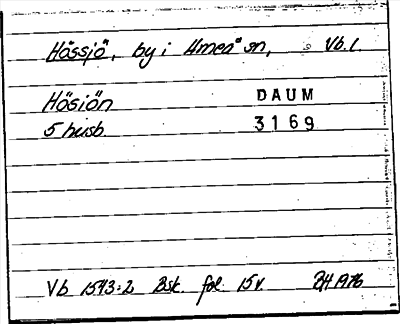 Hössjö, by i Umeå sn, Vb.l
Hösiön DAUM
5 husb 3169
Vb 1543:2 Bsk. fol. 15v. BH 1976